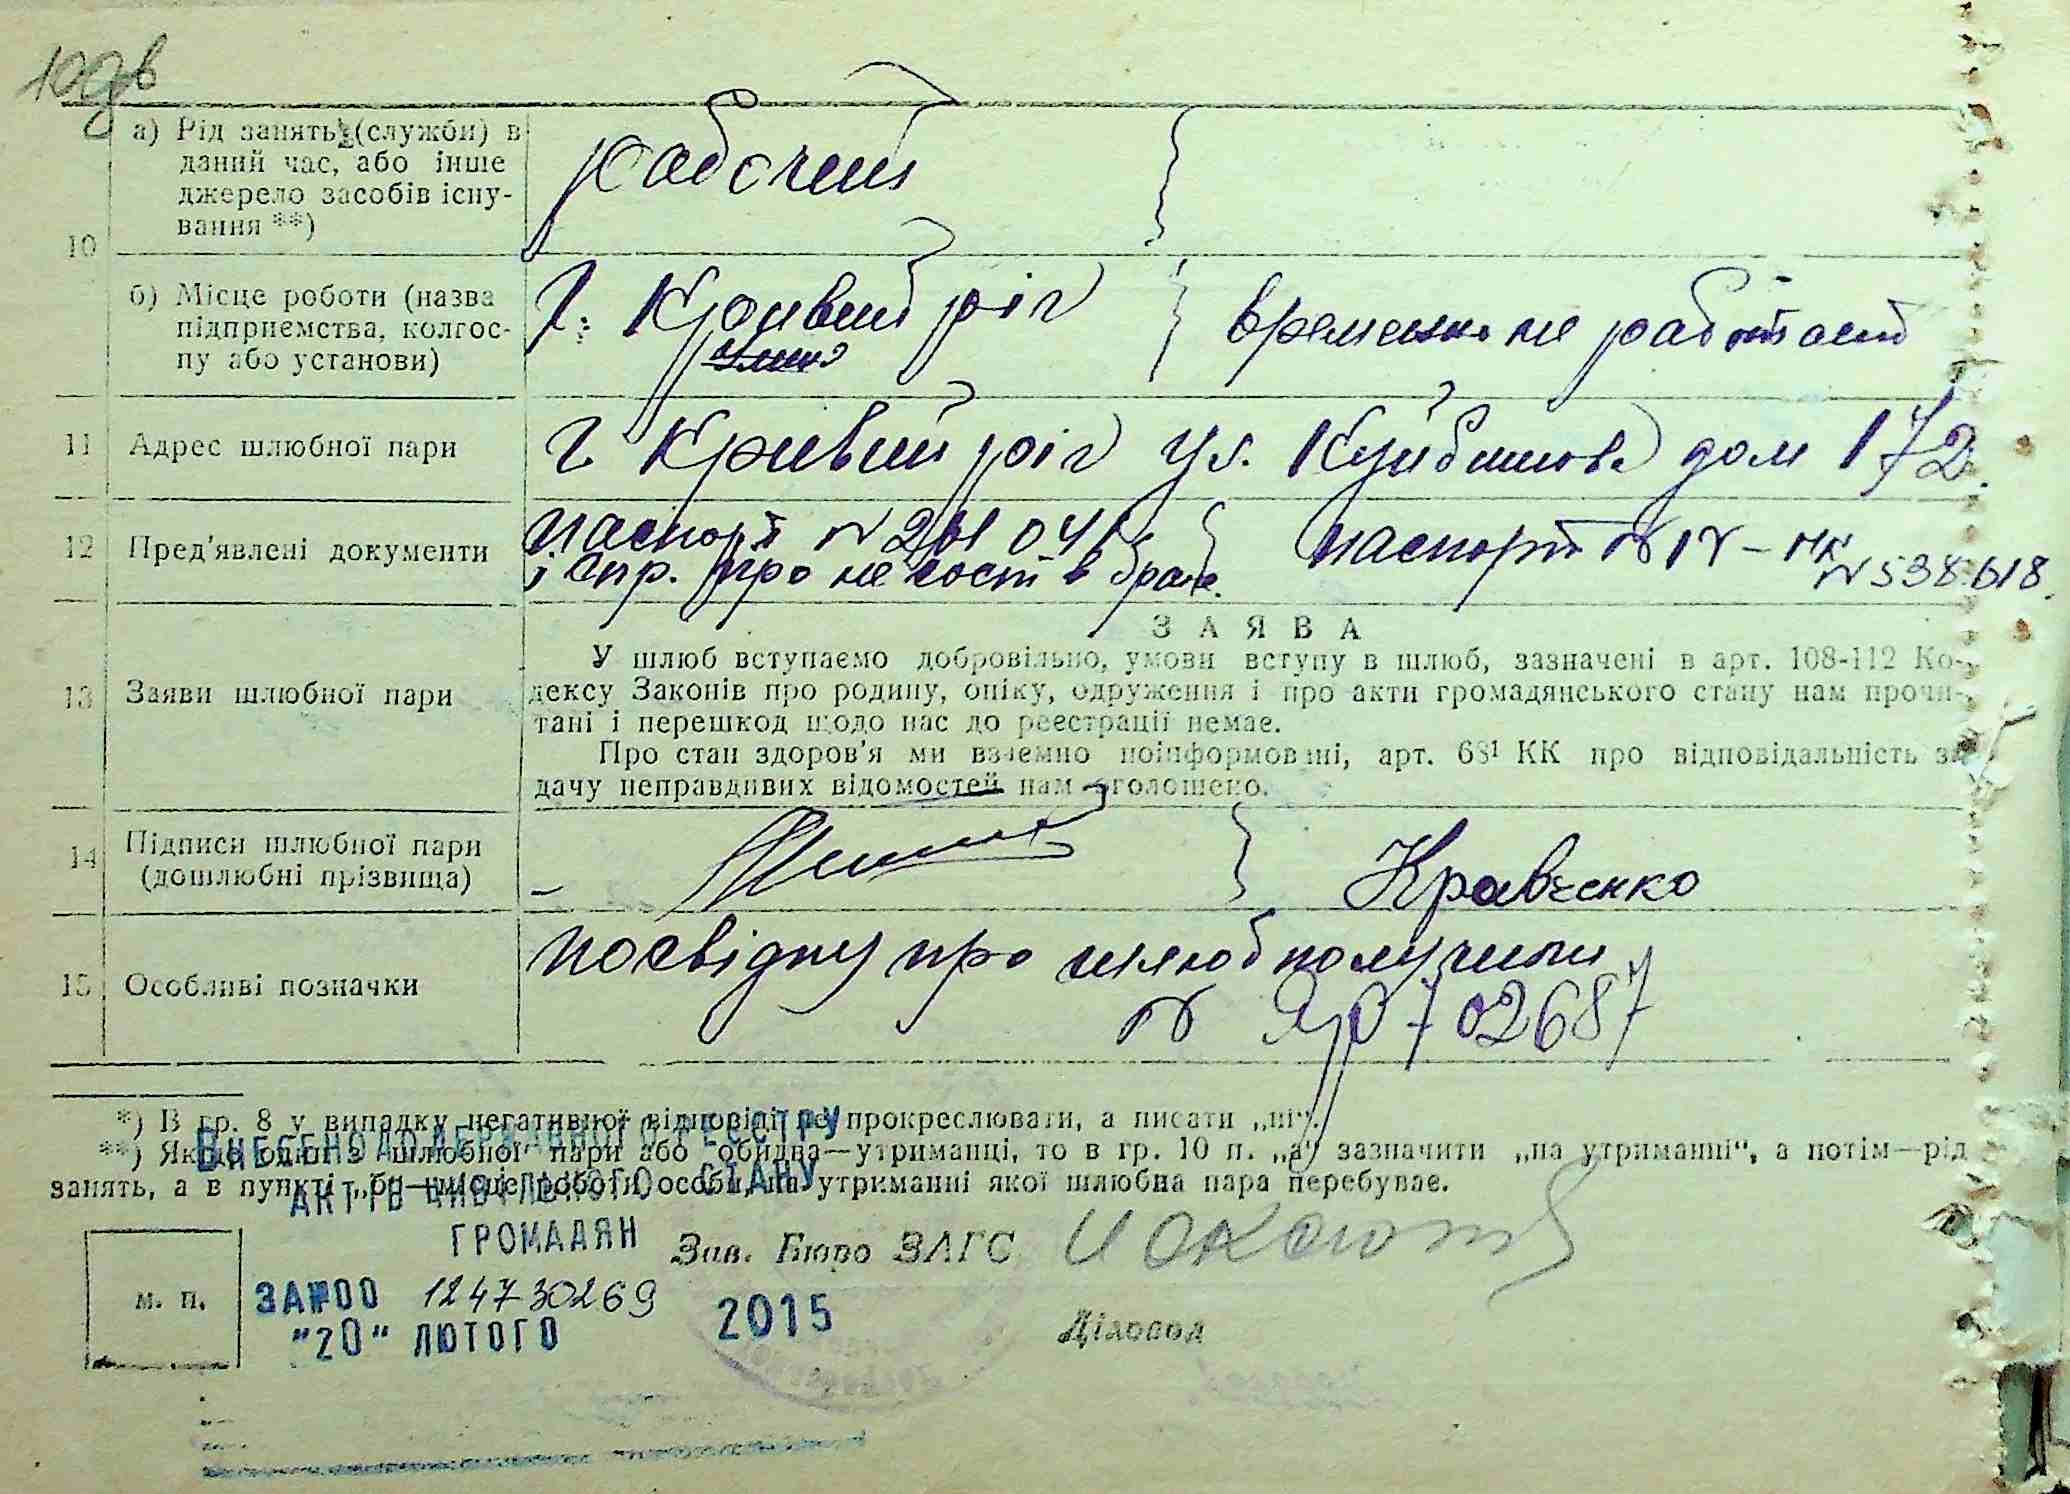 10 а) Рід занять (служби) в даний час, або інше джерело засобів існування **) рабочий
б) Місце роботи (назва підприємства, колгоспу або установи) г. Кривий ріг временно не работает
11 Адрес шлюбної пари г Кривий ріг ул. Куйбишова дом 172
12 Пред'явлені документи паспорт паспорт № IV – МК
і спр. про не сост в браке. N 538618.
ЗАЯВА
13 Заяви шлюбної пари
У шлюб вступаємо добровільно, умови вступу в шлюб, зазначені в арт. 108-112 Ко-
дексу Законів про родину, опіку, одруження і про акти громадянського стану нам прочи-
тані і перешкод щодо нас до реєстрації немає.
Про стан здоров'я ми взаємно поінформовані, арт. 68¹ КК про відповідальність за
дачу неправдивих відомостей нам оголошено.
14 Підписи шлюбної пари
(дошлюбні прізвища) Кравченко
15 Особливі позначки посвідку про шлюб получили
№ 02687
*) В гр. 8 у випадку негативної відповіді не прокреслювати, а писати „ні".
**) Якщо один з шлюбної пари або обидва—утриманці, то в гр. 10 п. „а" зазначити „на утриманні", а потім—рід
занять, а в пункті „б"—місце роботи особи, на утриманні якої шлюбна пара перебуває.
ВНЕСЕНО ДО ДЕРЖАВНОГО РЕЄСТРУ
АКТІВ ЦИВІЛЬНОГО СТАНУ
ГРОМАДЯН
Зав. Бюро ЗАГС
м. п.
ЗА №00 1247730269
"20" ЛЮТОГО 2015
Діловод